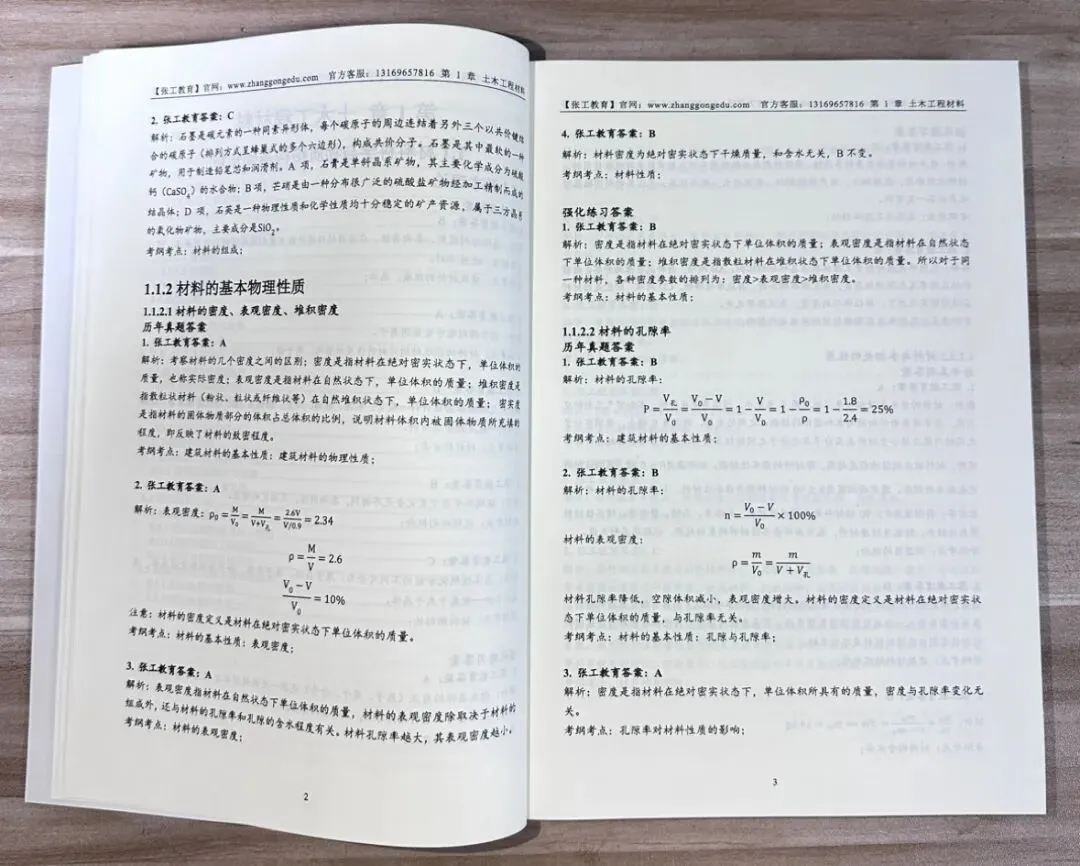 【张工教育】官网：www.zhanggongedu.com 官方客服：13169657816 第 1 章 土木工程材料
2. 张工教育答案：C
解析：石墨是碳元素的一种同素异形体，每个碳原子的周边连结着另外三个以共价键结
合的碳原子（排列方式呈蜂巢式的多个六边形），构成共价分子。石墨是其中最软的一种
矿物，用于制造铅笔芯和润滑剂。A 项，石膏是单斜晶系矿物，其主要化学成分为硫酸
钙（CaSO₄）的水合物；B项，芒硝是由一种分布很广泛的硫酸盐矿物经加工精制而成的
结晶体；D 项，石英是一种物理性质和化学性质均十分稳定的矿产资源，属于三方晶系
的氧化物矿物，主要成分是SiO₂。
考纲考点：材料的组成；
1.1.2 材料的基本物理性质
1.1.2.1 材料的密度、表观密度、堆积密度
历年真题答案
1. 张工教育答案：A
解析：考察材料的几个密度之间的区别；密度是指材料在绝对密实状态下，单位体积的
质量，也称实际密度；表观密度是指材料在自然状态下，单位体积的质量；堆积密度是
指散粒状材料（粉状、粒状或纤维状等）在自然堆积状态下，单位体积的质量；密实度
是指材料的固体物质部分的体积占总体积的比例，说明材料体积内被固体物质所充填的
程度，即反映了材料的致密程度。
考纲考点：建筑材料的基本性质：建筑材料的物理性质；
2. 张工教育答案：A
解析：表观密度：ρ₀ = M/V₀ = M/(V+V孔) = 2.6V/(V/0.9) = 2.34
ρ = M/V = 2.6
(V₀ − V)/V₀ = 10%
注意：材料的密度定义是材料在绝对密实状态下单位体积的质量。
考纲考点：材料的基本性质：表观密度；
3. 张工教育答案：A
解析：表观密度指材料在自然状态下单位体积的质量，材料的表观密度除取决于材料的
组成外，还与材料的孔隙率和孔隙的含水程度有关。材料孔隙率越大，其表观密度越小。
考纲考点：材料的表观密度；
2
【张工教育】官网：www.zhanggongedu.com 官方客服：13169657816 第 1 章 土木工程材料
4. 张工教育答案：B
解析：材料密度为绝对密实状态下干燥质量，和含水无关，B 不变。
考纲考点：材料性质；
强化练习答案
1. 张工教育答案：B
解析：密度是指材料在绝对密实状态下单位体积的质量；表观密度是指材料在自然状态
下单位体积的质量；堆积密度是指散粒材料在堆积状态下单位体积的质量。所以对于同
一种材料，各种密度参数的排列为：密度>表观密度>堆积密度。
考纲考点：材料的基本性质；
1.1.2.2 材料的孔隙率
历年真题答案
1. 张工教育答案：B
解析：材料的孔隙率：
P = V孔/V₀ = (V₀ − V)/V₀ = 1 − V/V₀ = 1 − ρ₀/ρ = 1 − 1.8/2.4 = 25%
考纲考点：建筑材料的基本性质；
2. 张工教育答案：B
解析：材料的孔隙率：
n = (V₀ − V)/V₀ × 100%
材料的表观密度：
ρ = m/V₀ = m/(V + V孔)
材料孔隙率降低，空隙体积减小，表观密度增大。材料的密度定义是材料在绝对密实状
态下单位体积的质量，与孔隙率无关。
考纲考点：材料的基本性质：孔隙与孔隙率；
3. 张工教育答案：A
解析：密度是指材料在绝对密实状态下，单位体积所具有的质量，密度与孔隙率变化无
关。
考纲考点：孔隙率对材料性质的影响；
3